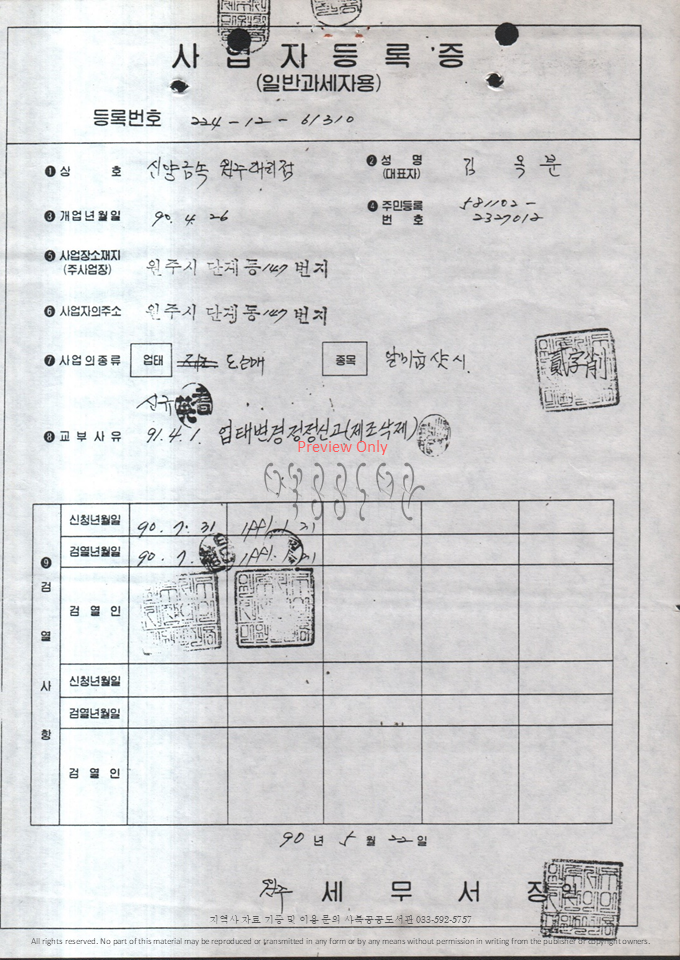 사업자등록증
(일반과세자용)
등록번호 224-12-61310
❶ 상 호 신양금속 원주대리점
❷ 성 명 (대표자) 김 옥 분
❸ 개업년월일 90. 4. 26
❹ 주민등록 번 호 581102-2327012
❺ 사업장소재지 (주사업장) 원주시 단계동 147 번지
❻ 사업자의주소 원주시 단계동 147 번지
❼ 사업의종류 업태 제조 도소매 종목 알미늄 샷시.
貳字削
신규
❽ 교부사유 91. 4. 1. 업태변경정정신고(제조삭제)
Preview Only
❾ 검열사항
신청년월일 90. 7. 31 1991. 1. 31
검열년월일 90. 7. 1991. 1. 31
검 열 인
신청년월일
검열년월일
검 열 인
90 년 5 월 22 일
원주 세 무 서 장 인
지역사 자료 기증 및 이용 문의 사북공공도서관 033-592-5757
All rights reserved. No part of this material may be reproduced or transmitted in any form or by any means without permission in writing from the publisher or copyright owners.